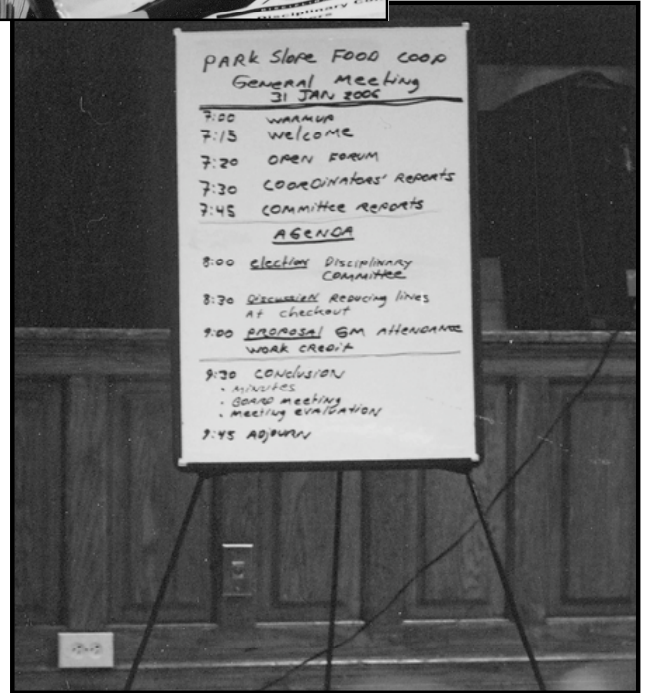 Disciplinary
PARK Slope FOOD COOP
GENERAL Meeting
31 JAN 2006
7:00 WARMUP
7:15 Welcome
7:20 OPEN FORUM
7:30 COORDINATORS' REPORTS
7:45 COMMITTEE REPORTS
AGENDA
8:00 election Disciplinary
COMMITTEE
8:30 Discussion Reducing lines
AT checkout
9:00 PROPOSAL GM ATTENDANCE
WORK CREDIT
9:30 CONCLUSION
• MINUTES
• BOARD meeting
• meeting evaluation
9:45 ADJOURN